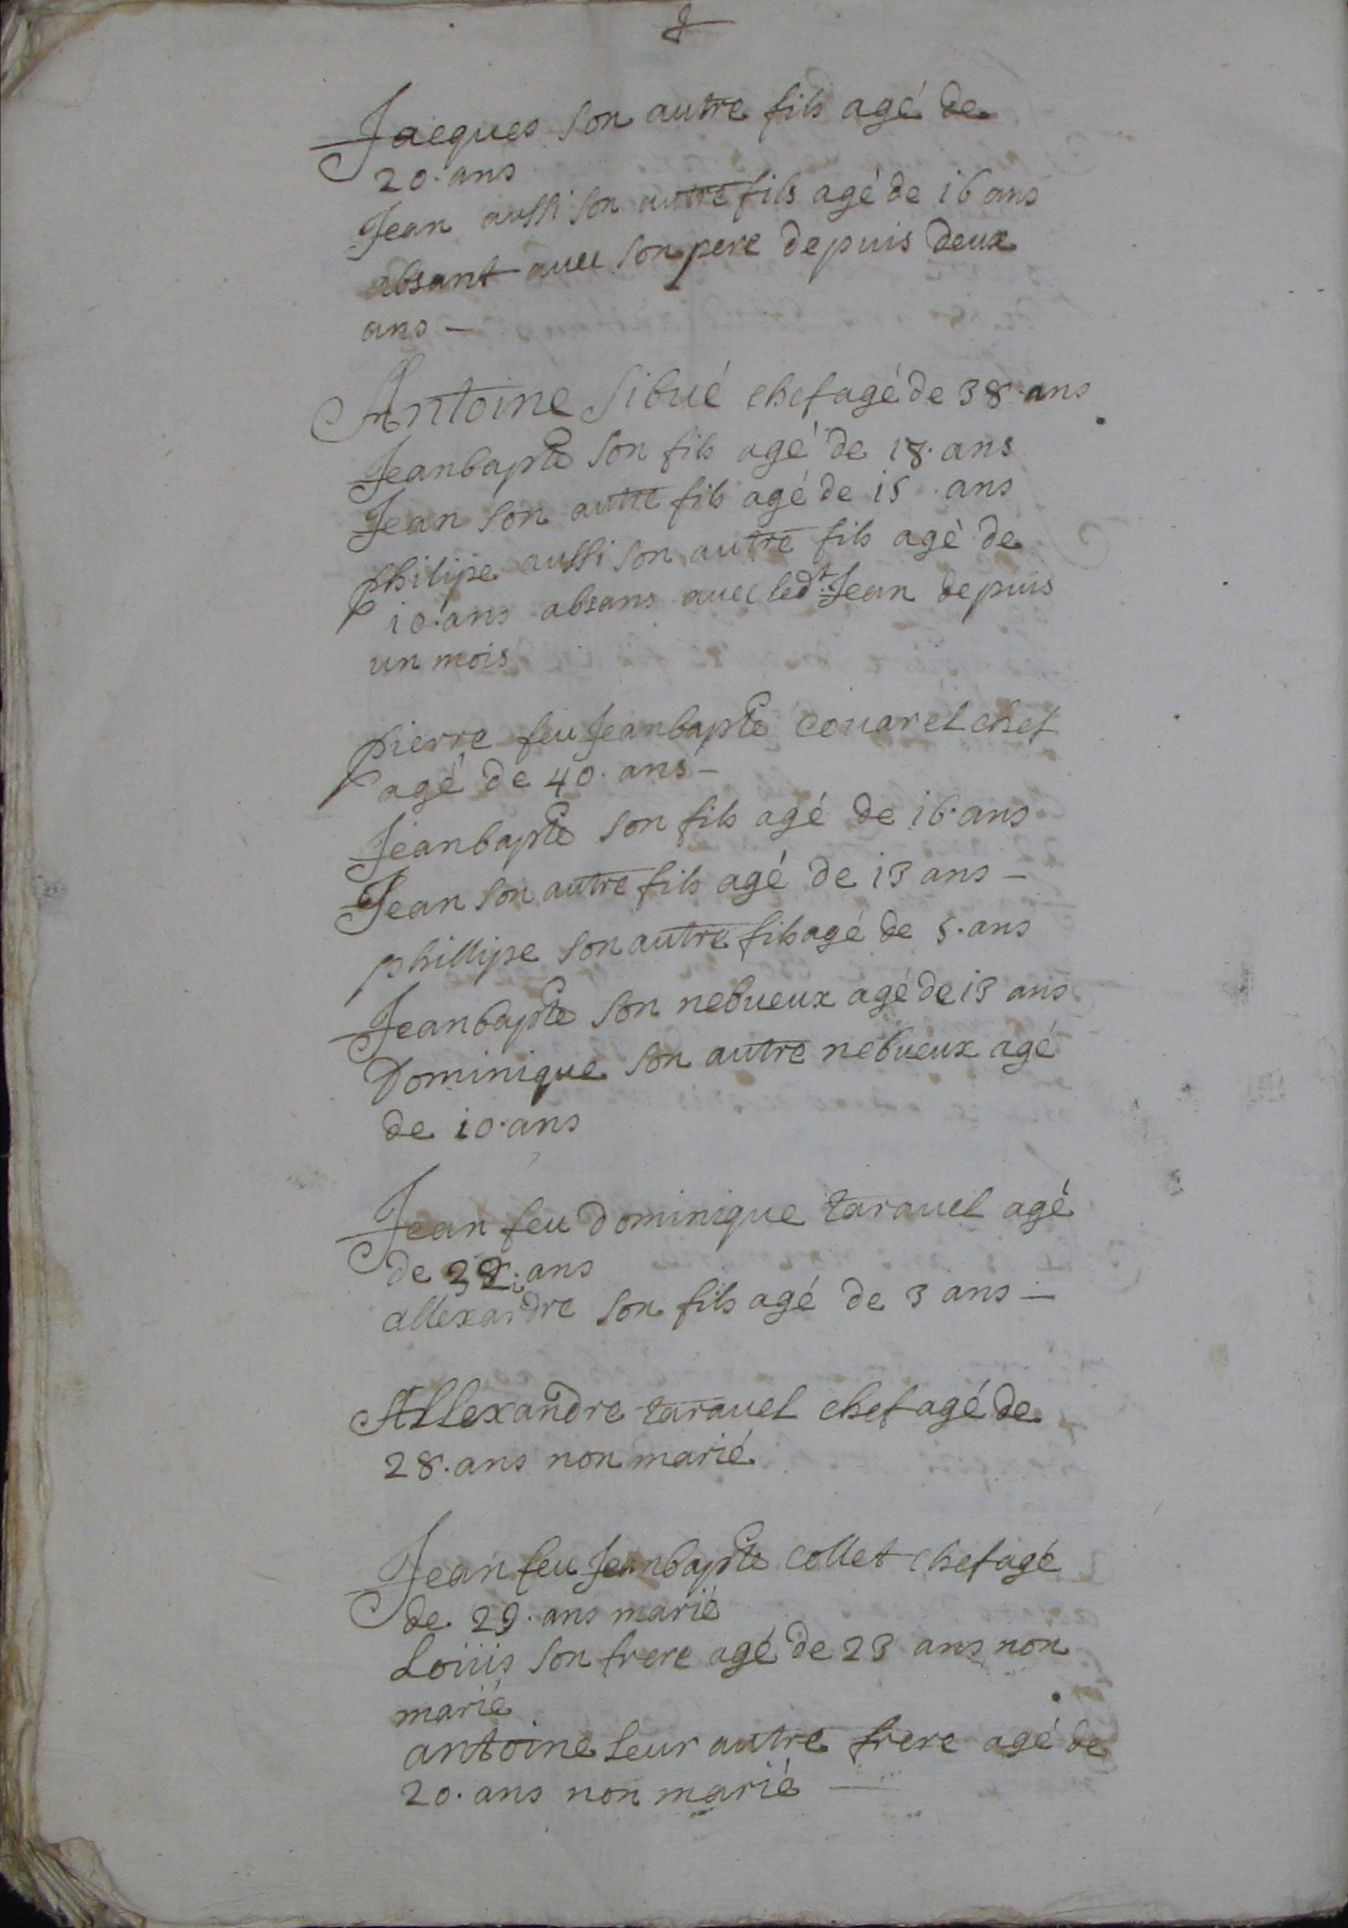 Jacques son autre fils agé de
20. ans
Jean aussi son autre fils agé de 16 ans
absant auec son pere depuis deux
ans —
Antoine Sibué chef agé de 38. ans
Jeanbapte son fils agé de 18. ans
Jean son autre fils agé de 15. ans
philipe aussi son autre fils agé de
10. ans absans auec ledt. Jean depuis
un mois
pierre feu Jeanbapte couarel chef
agé de 40. ans —
Jeanbapte son fils agé de 16. ans
Jean son autre fils agé de 13 ans —
phillipe son autre fils agé de 5. ans
Jeanbapte son nebueux agé de 13 ans
Dominique son autre nebueux agé
de 10. ans
Jean feu Dominique tarauel agé
de ans
allexandre son fils agé de 3 ans —
Allexandre tarauel chef agé de
28. ans non marié
Jean feu Jeanbapte collet chef agé
de 29. ans marié
Loüis son frere agé de 23 ans non
marié
antoine leur autre frere agé de
20. ans non marié —